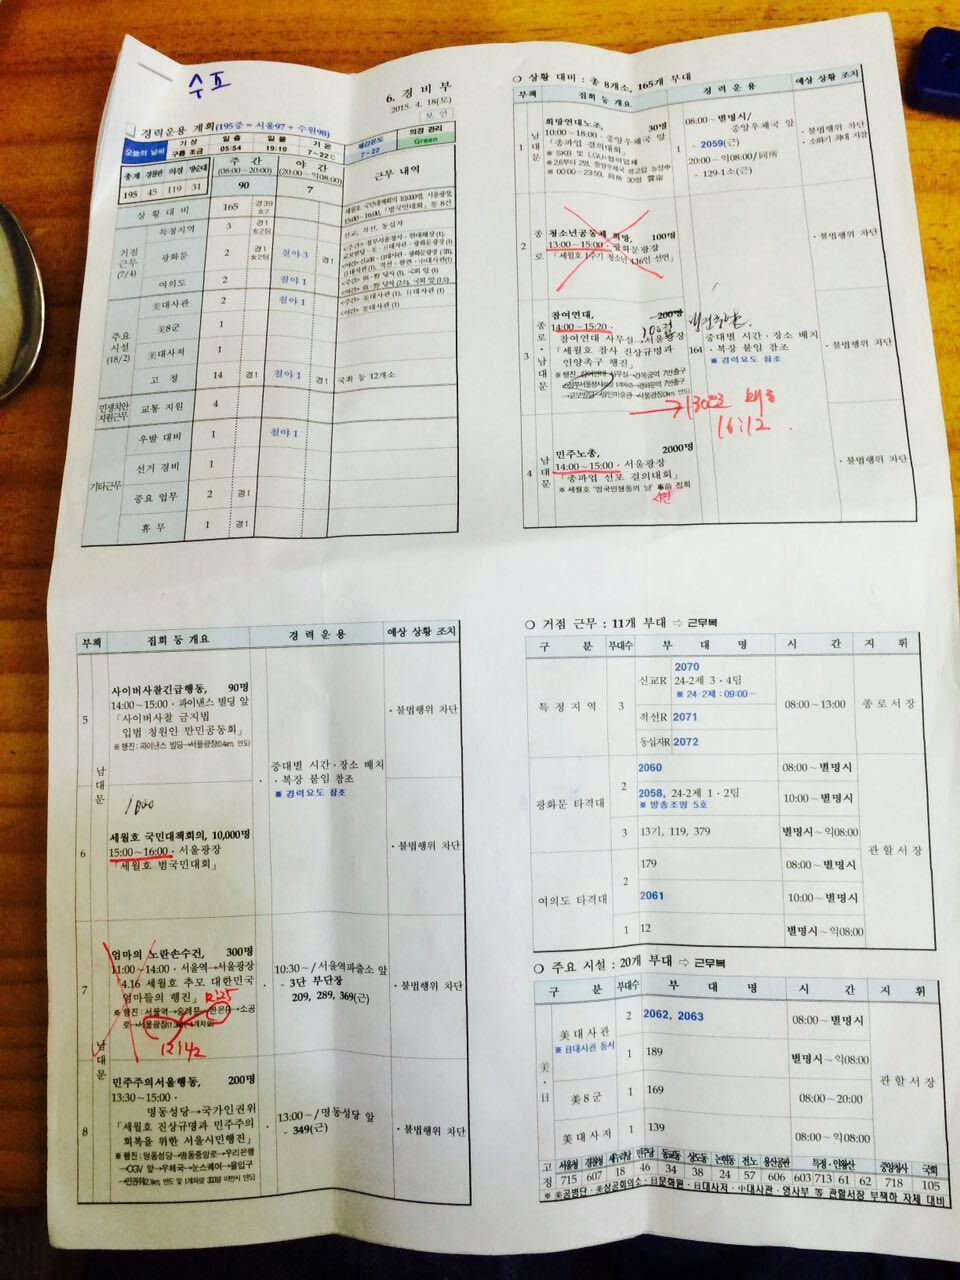 수표
6. 경비부
2015. 4. 18(토)
보 안
□ 경력운용 계획(195중 = 서울97 + 수원98)
오늘의 날씨 기 상 일 출 일 몰 기 온 체감온도 의경 관리
구름 조금 05:54 19:10 7~22℃ 7~22 Green
총계 경찰관 의경 방순대 주 간 야 간 근무 내역
(08:00~20:00) (20:00~익08:00)
195 45 119 31 90 7
상 황 대 비 165 경39 女2
특정지역 3 경1 女2팀 신교, 적선, 동십자
거점 근무 (7/4)
광화문 2 경1 女2팀 철야 3
여의도 2 철야 1
주요 시설 (18/2)
美대사관 2 철야 1
美8군 1
美대사저 1
고 정 14 경1 철야 1 국회 등 12개소
민생치안 지원근무 교통 지원 4
기타근무
우발 대비 1 철야 1
선거 경비 1
중요 업무 2 경1
휴 무 1 경1
○ 상황 대비 : 총 8개소, 165개 부대
부책 집회 등 개요 경 력 운 용 예상 상황 조치
1 남대문
희망연대노조, 30명
10:00~18:00 · 중앙우체국 앞
「총파업 결의대회」
※ SKB 및 LGU+협력업체
※ 00:00~23:59, 同所 30명 露宿
1
08:00~별명시/
중앙우체국 앞
- 2059(근)
20:00~익08:00/同所
- 129-1소(근)
· 불법행위 차단
· 소화기 최대 지참
2 종로
청소년공동체 희망, 100명
13:00~15:00 · 광화문광장
「세월호 1주기 청소년 4.16인 선언」
· 불법행위 차단
3 종로 남대문
참여연대, 200명
14:00~15:20 ·
참여연대 사무실→서울광장
「세월호 참사 진상규명과
인양촉구 행진」
164
중대별 시간 · 장소 배치
· 복장 붙임 참조
※ 경력요도 참조
· 불법행위 차단
16:12
4 남대문
민주노총, 2000명
14:00~15:00 · 서울광장
「총파업 선포 결의대회」
※ 세월호 "범국민행동의 날" 事前 집회
사전
· 불법행위 차단
부책 집회 등 개요 경 력 운 용 예상 상황 조치
5 남대문
사이버사찰긴급행동, 90명
14:00~15:00 · 파이낸스 빌딩 앞
「사이버사찰 금지법
입법 청원인 만민공동회」
※ 행진 : 파이낸스 빌딩→서울광장(0.4km, 인도)
중대별 시간 · 장소 배치
· 복장 붙임 참조
※ 경력요도 참조
· 불법행위 차단
6
세월호 국민대책회의, 10,000명
15:00~16:00 · 서울광장
「세월호 범국민대회」
· 불법행위 차단
7 남대문
엄마의 노란손수건, 300명
11:00~14:00 · 서울역→서울광장
「4.16 세월호 추모 대한민국
엄마들의 행진」
12:25
12:42
10:30~/서울역파출소 앞
- 3단 부단장
209, 289, 369(근)
· 불법행위 차단
8
민주주의서울행동, 200명
13:30~15:00 ·
명동성당→국가인권위
「세월호 진상규명과 민주주의
회복을 위한 서울시민행진」
※ 행진 : 명동성당→명동중앙로→우리은행
→CGV 앞→우체국→눈스퀘어→을입구
13:00~/명동성당 앞
- 349(근)
· 불법행위 차단
○ 거점 근무 : 11개 부대 ⇨ 근무복
구 분 부대수 부 대 명 시 간 지 휘
특 정 지 역 3 신교R 2070
24-2제 3 · 4팀
※ 24-2제 : 09:00~
08:00~13:00 종로서장
적선R 2071
동십자R 2072
광화문 타격대 2 2060 08:00~별명시
2058, 24-2제 1 · 2팀
※ 방송조명 5호
10:00~별명시
3 13기, 119, 379 별명시~익08:00
관할서장
여의도 타격대 2 179 08:00~별명시
2061 10:00~별명시
1 12 별명시~익08:00
○ 주요 시설 : 20개 부대 ⇨ 근무복
구 분 부대수 부 대 명 시 간 지 휘
美 · 日
美대사관 2 2062, 2063 08:00~별명시
※ 日대사관 동시
1 189 별명시~익08:00
관할서장
美8군 1 169 08:00~20:00
美대사저 1 139 08:00~익08:00
고정
서울청 경찰청 새누리당 민주당 동교동 상도동 논현동 전노 용산공관 특정·인왕산 중앙청사 국회
715 607 18 46 34 38 24 57 606 603 713 61 62 718 105
※ 美공병단 · 美상공회의소 · 日문화원 · 日대사저 · 中대사관 · 영사부 등 관할서장 부책하 자체 대비